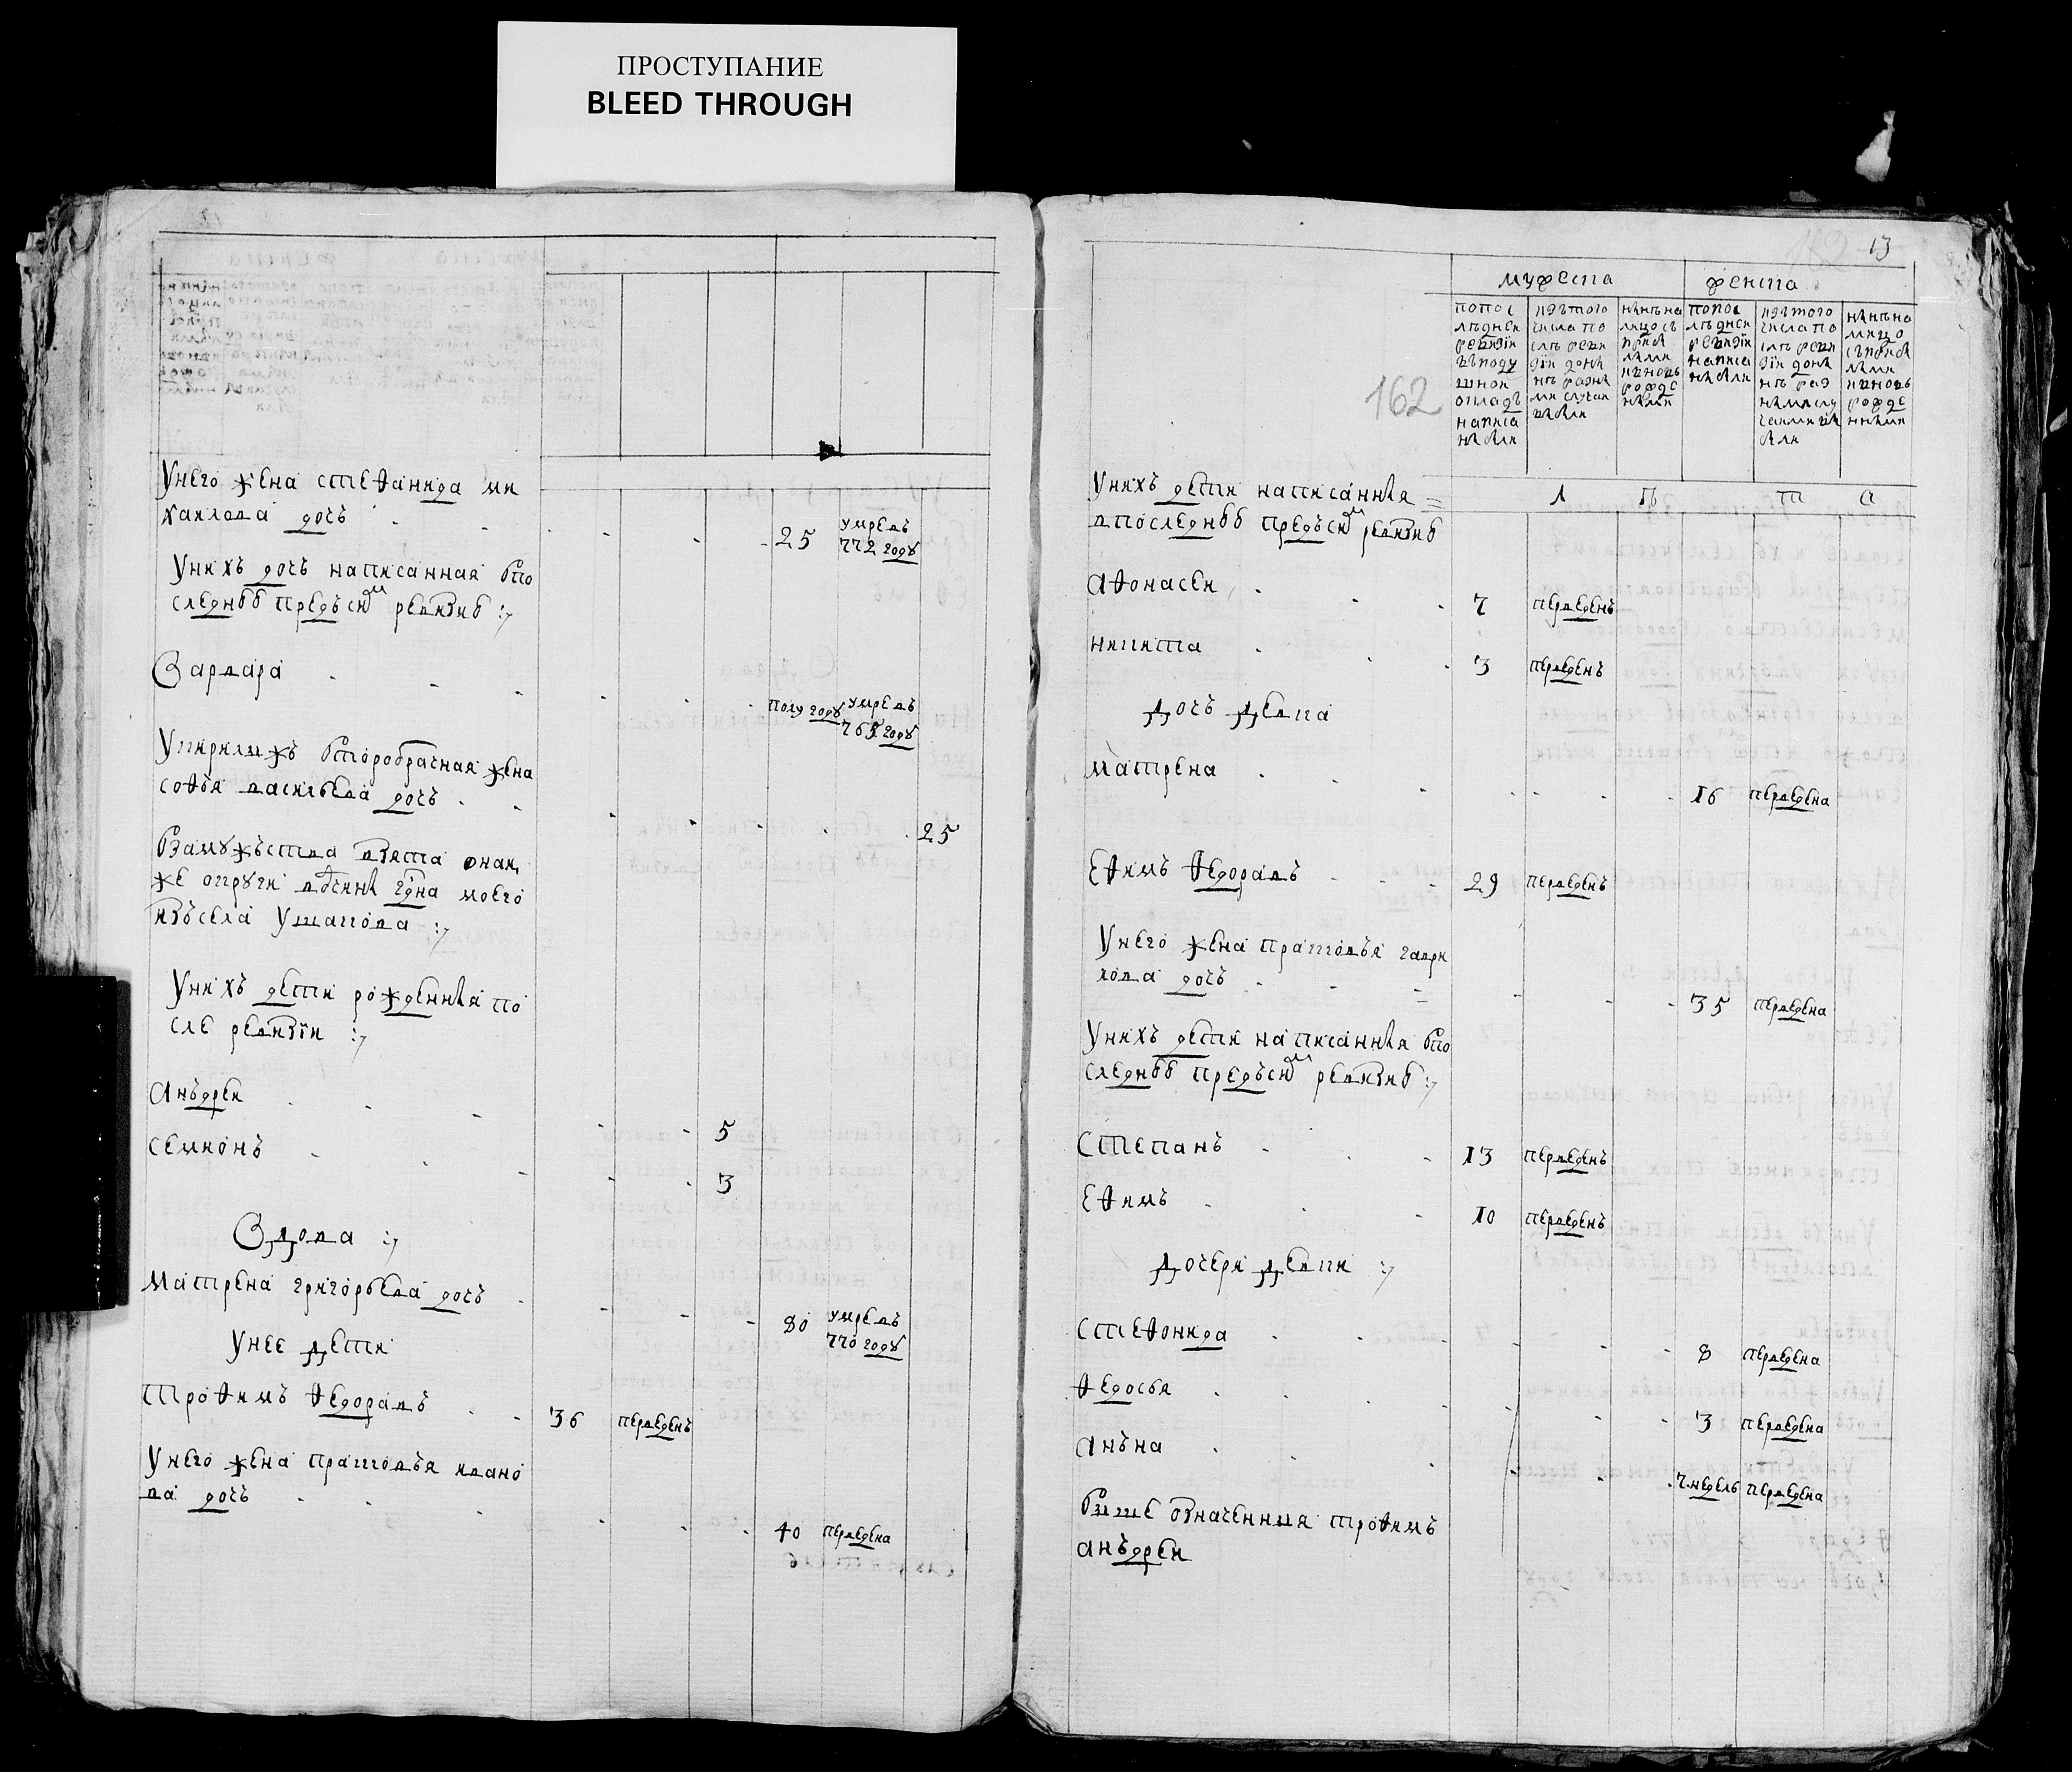 ПРОСТУПАНИЕ
BLEED THROUGH
Унего жена стефанида ми
хаилова дочь 25 умре въ
772 году
Унихъ дочь написанная впо
следнѣй предъ сим ревизиѣ :/
Варвара полу году умре въ
765 году
Упирилы жъ второбрачная жена
софья васильева дочь 25
Взамужъства взята оная,
же округи
изъ села Ушакова :/
Унихъ дети рожденныя по
сле ревизiи :/
анъдреи 5
семионъ 3
Вдова :/
матрена григорьева дочь 80 умре въ
770 году
Унее дети
трофимъ федоравъ 36 переведенъ
Унего жена прасковья ивано
ва дочь 40 переведена
13
162
162
мужеска женска
попос
лѣдней
ревизiи
въподу
шной
окладъ
написа
ны были
изътого
числа по
слѣ реви
зiи доны
нѣ разны
ми случаи
выбыли
нынѣ на
лицо съ
прибы
лыми
и вновь
рожде
ными
попос
лѣдней
ревизiи
написа
ны были
изътого
числа по
слѣ реви
зiи доны
нѣ раз
ными слу
чаими вы
были
нынѣ на
лицо
съ прибы
лыми
и вновь
рожде
нными
л ѣ т а
Унихъ дети написанныя
впоследнѣй предъсим ревизиѣ
афонасеи 7 переведенъ
никита 3 переведенъ
дочь девка
матрена 16 переведена
ефимъ федоравъ 29 переведенъ
Унего жена прасковья гаври
лова дочь 35 переведена
Унихъ дети написанныя впо
следнѣй предъсим ревизиѣ :/
степанъ 13 переведенъ
ефимъ 10 переведенъ
дочери девки :/
стефонида 8 переведена
федосья 3 переведена
анъна 7 недель переведена
выше означенныя трофимъ
анъдреи